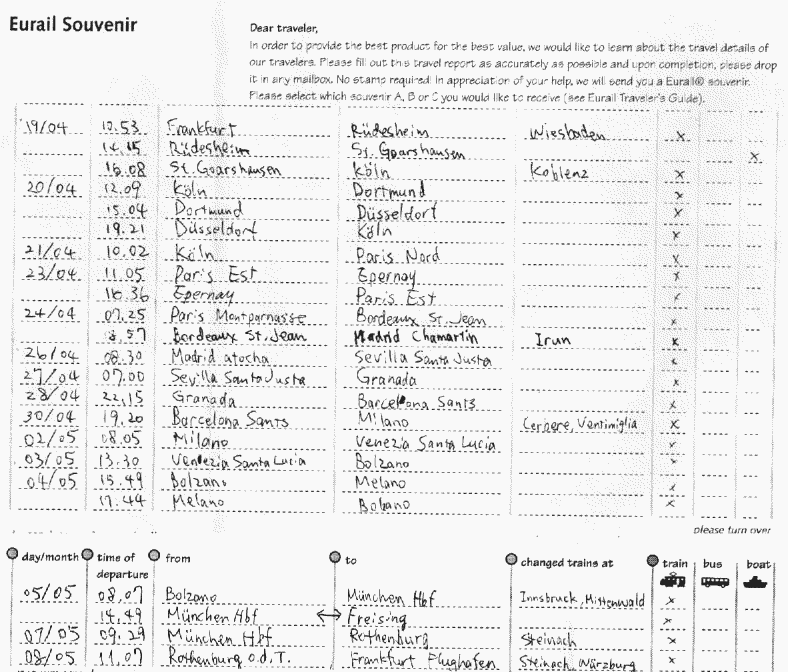 Eurail Souvenir
Dear traveler,
In order to provide the best product for the best value, we would like to learn about the travel details of
our travelers. Please fill out this travel report as accurately as possible and upon completion, please drop
it in any mailbox. No stamp required! In appreciation of your help, we will send you a Eurail® souvenir.
Please select which souvenir A, B or C you would like to receive (see Eurail Traveler's Guide).
19/04 10.53 Frankfurt Rüdesheim Wiesbaden x
14.15 Rüdesheim St. Goarshausen x
16.08 St. Goarshausen Köln Koblenz x
20/04 12.09 Köln Dortmund x
15.04 Dortmund Düsseldorf x
19.21 Düsseldorf Köln x
21/04 10.02 Köln Paris Nord x
23/04 11.05 Paris Est Epernay x
16.36 Epernay Paris Est x
24/04 07.25 Paris Montparnasse Bordeaux St. Jean x
.57 Bordeaux St. Jean Madrid Chamartin Irun x
26/04 08.30 Madrid atocha Sevilla Santa Justa x
27/04 07.00 Sevilla Santa Justa Granada x
28/04 22.15 Granada Barcelona Sants x
30/04 19.20 Barcelona Sants Milano Cerbere, Ventimiglia x
02/05 08.05 Milano Venezia Santa Lucia x
03/05 13.30 Venezia Santa Lucia Bolzano x
04/05 15.49 Bolzano Melano x
17.44 Melano Bolzano x
please turn over
day/month time of departure from to changed trains at train bus boat
05/05 08.07 Bolzano München Hbf Innsbruck, Mittenwald x
14.49 München Hbf ↔ Freising x
07/05 09.29 München Hbf Rothenburg Steinach x
08/05 11.07 Rothenburg o.d.T. Frankfurt Flughafen Steinach, Würzburg x